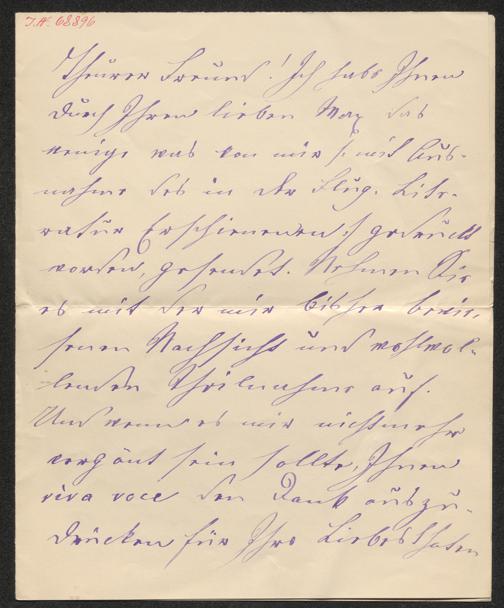 I.N. 68896
Theurer Freund! Ich habe Ihnen
durch Ihren lieben Max das
wenige was von mir /: mit Aus-
nahme des in der Flug. Lite-
ratur Erschienenen :/ gedruckt
worden, gesendet. Nehmen Sie
es mit der mir bisher bewie-
senen Nachsicht und wohlwol-
lenden Theilnahme auf.
Und wenn es mir nicht mehr
vergönt sein sollte, Ihnen
viva voce den Dank auszu-
drücken für Ihre Liebesthaten